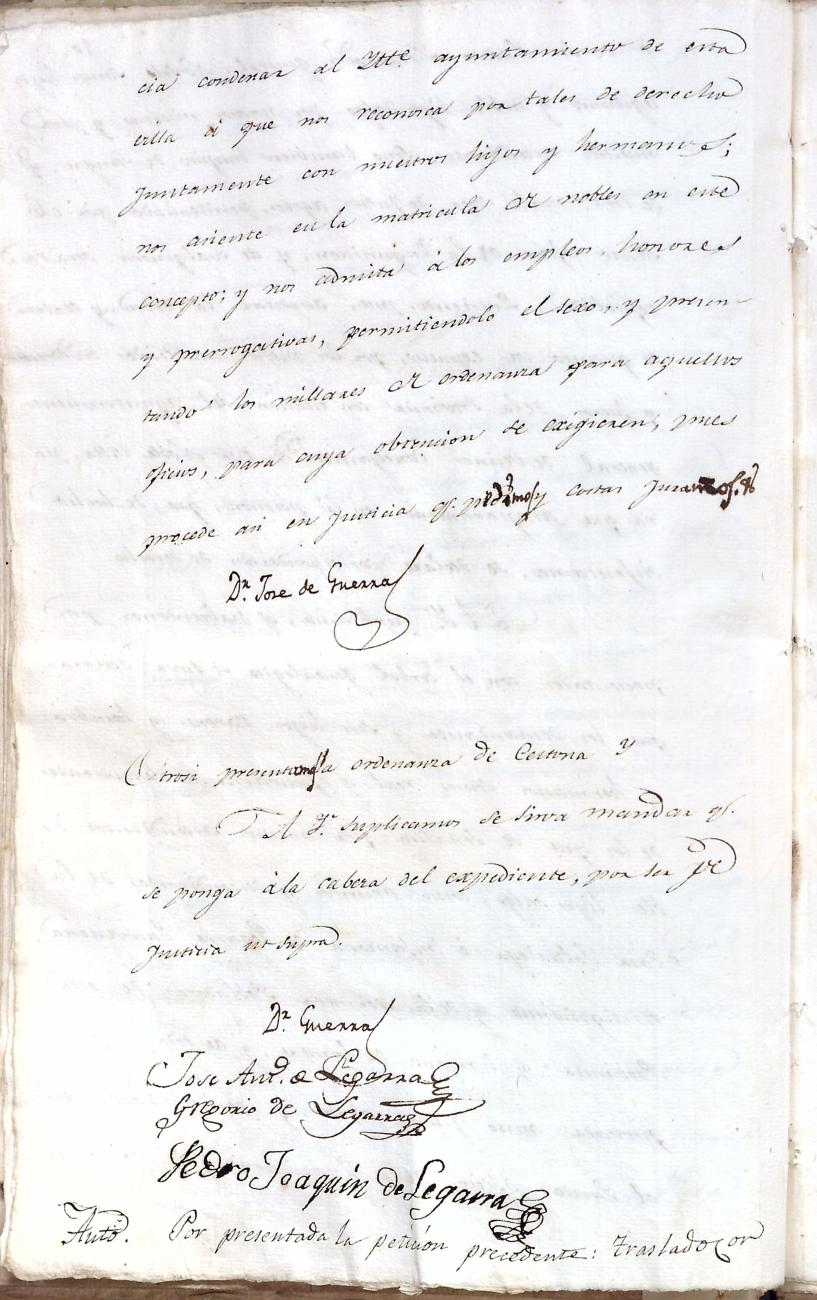 cia condenar al Ytte. ayuntamiento de esta
villa á que nos reconosca por tales de derecho
juntamente con nuestros hijos y hermanos;
nos aciente en la matricula de nobles en este
concepto; y nos admita á los empleos, honores
y prerrogativas, permitiendolo el sexo, y presen-
tando los millares de ordenanza para aquellos
oficios, para cuya obtencion se exigieren, pues
procede asi en Justicia q.e pedimos y costas Juramos. &
Dr. Jose de Guerra
Otrosi presentamos la ordenanza de Cestona y
A V. suplicamos se sirva mandar q.e
se ponga á la cabeza del expediente, por ser de
Justicia ut supra.
Dr. Guerra
Jose Ant.o de Legarra
Gregorio de Legarra
Pedro Joaquin de Legarra
Auto. Por presentada la peticion precedente: traslado con